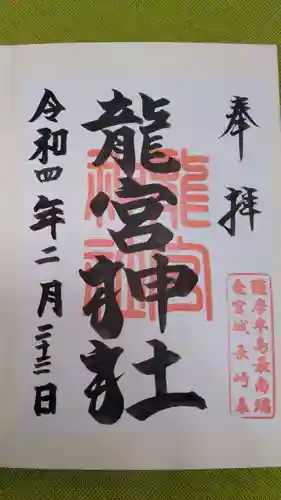 奉拝
薩摩半島最南端
竜宮城長崎鼻
龍宮神社
龍宮
神社
令和四年二月二十三日